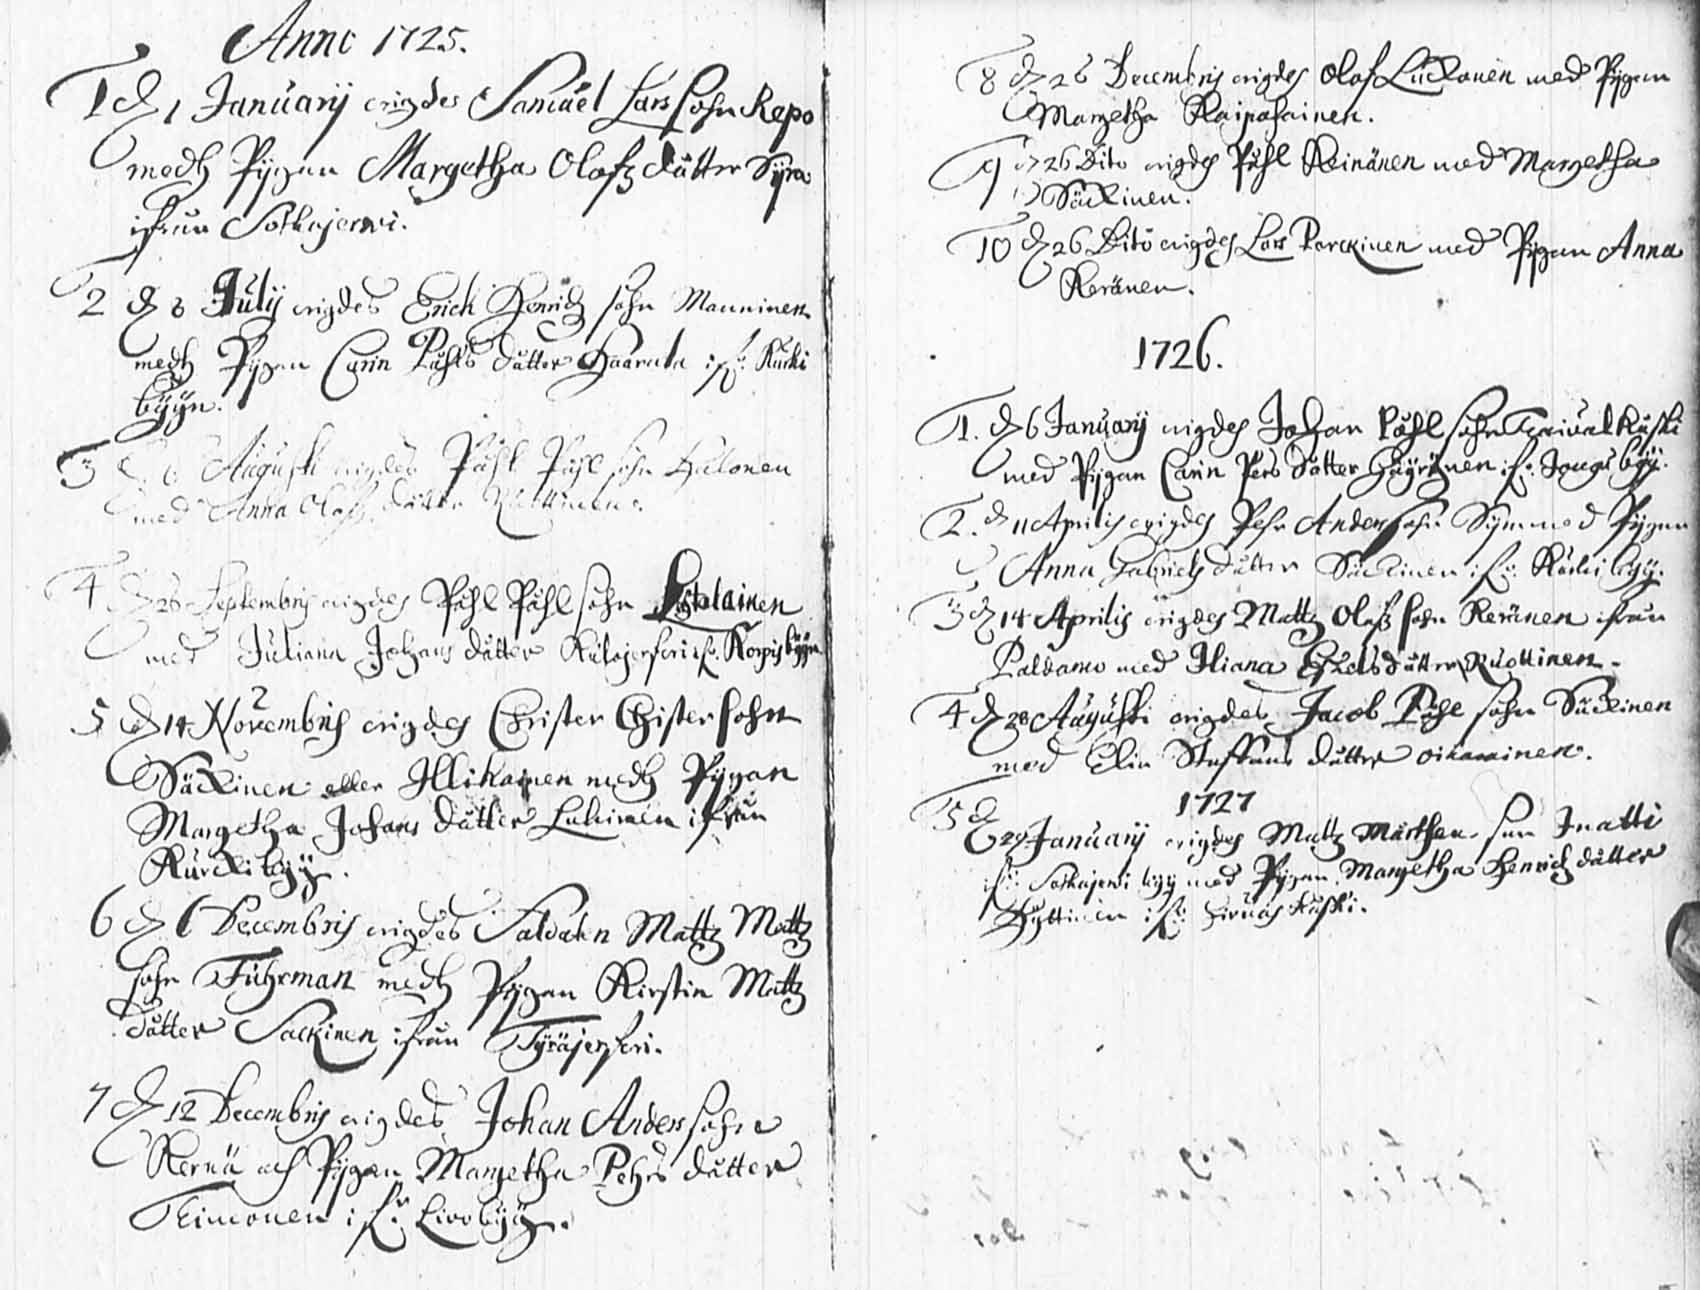 Anno 1725.
1 d 1 Januarij wigdes Samuel Larssohn Repo
medh Pigan Margetha Olofz dåtter Syra
ifrån Sotkajerwi.
2 d 8 Julij wigdes Erich Henrichz sohn Manninen
medh Pigan Carin Påhls dåtter Haarala if: Kurki
byyn.
3 d 6 Augusti wigdes Påhl Påhl sohn Halonen
med Anna Olofz dåtter
4 d 26 Septembris wigdes Påhl Påhl sohn
med Juliana Johans dåtter if. Korpisbyyn
5 d 14 Novembris wigdes Christer Christersohn
Säckinen eller Illikainen medh Pigan
Margetha Johans dåtter Lukinen ifrån
Kurckibyy.
6 d 6 Decembris wigdes Saldatn Mattz Mattz
sohn Fuhrman medh Pigan Kirstin Mattz
dåtter Säckinen ifrån Tyräjerfwi.
7 d 12 Decembris wigdes Johan Anderssohn
Kernä och Pigan Margetha Pehrs dåtter
Timonen ifr: Livobyy.
8 d 26 Decembris wigdes Olof Luckonen med Pigan
Margetha Kaipahainen.
9 d 26 Dito wigdes Påhl Keinänen med Margetha
Säckinen.
10 d 26 Dito wigdes Lars Parckinen med Pigan Anna
Keränen.
1726.
1. d 6 Januarij wigdes Johan Påhl sohn Taivalkoski
med Pigan Carin Pers dåtter if: byy.
2. d 11 Aprilis wigdes Pehr Anderssohn med Pigan
Anna Gabriels dåtter Säckinen if: Kurkibyy.
3 d 14 Aprilis wigdes Mattz Olofz sohn Keränen ifrån
Paldamo med Iliana Eskels dåtter Ruottinen.
4 d 28 Augusti wigdes Jacob Påhl sohn Säckinen
med Elin Staffans dåtter Oikarainen.
1727
5 d 29 Januarij wigdes Mattz Mårthen son Inatti
if: Sotkajerwi byy med Pigan Margetha Henrich dåtter
if: